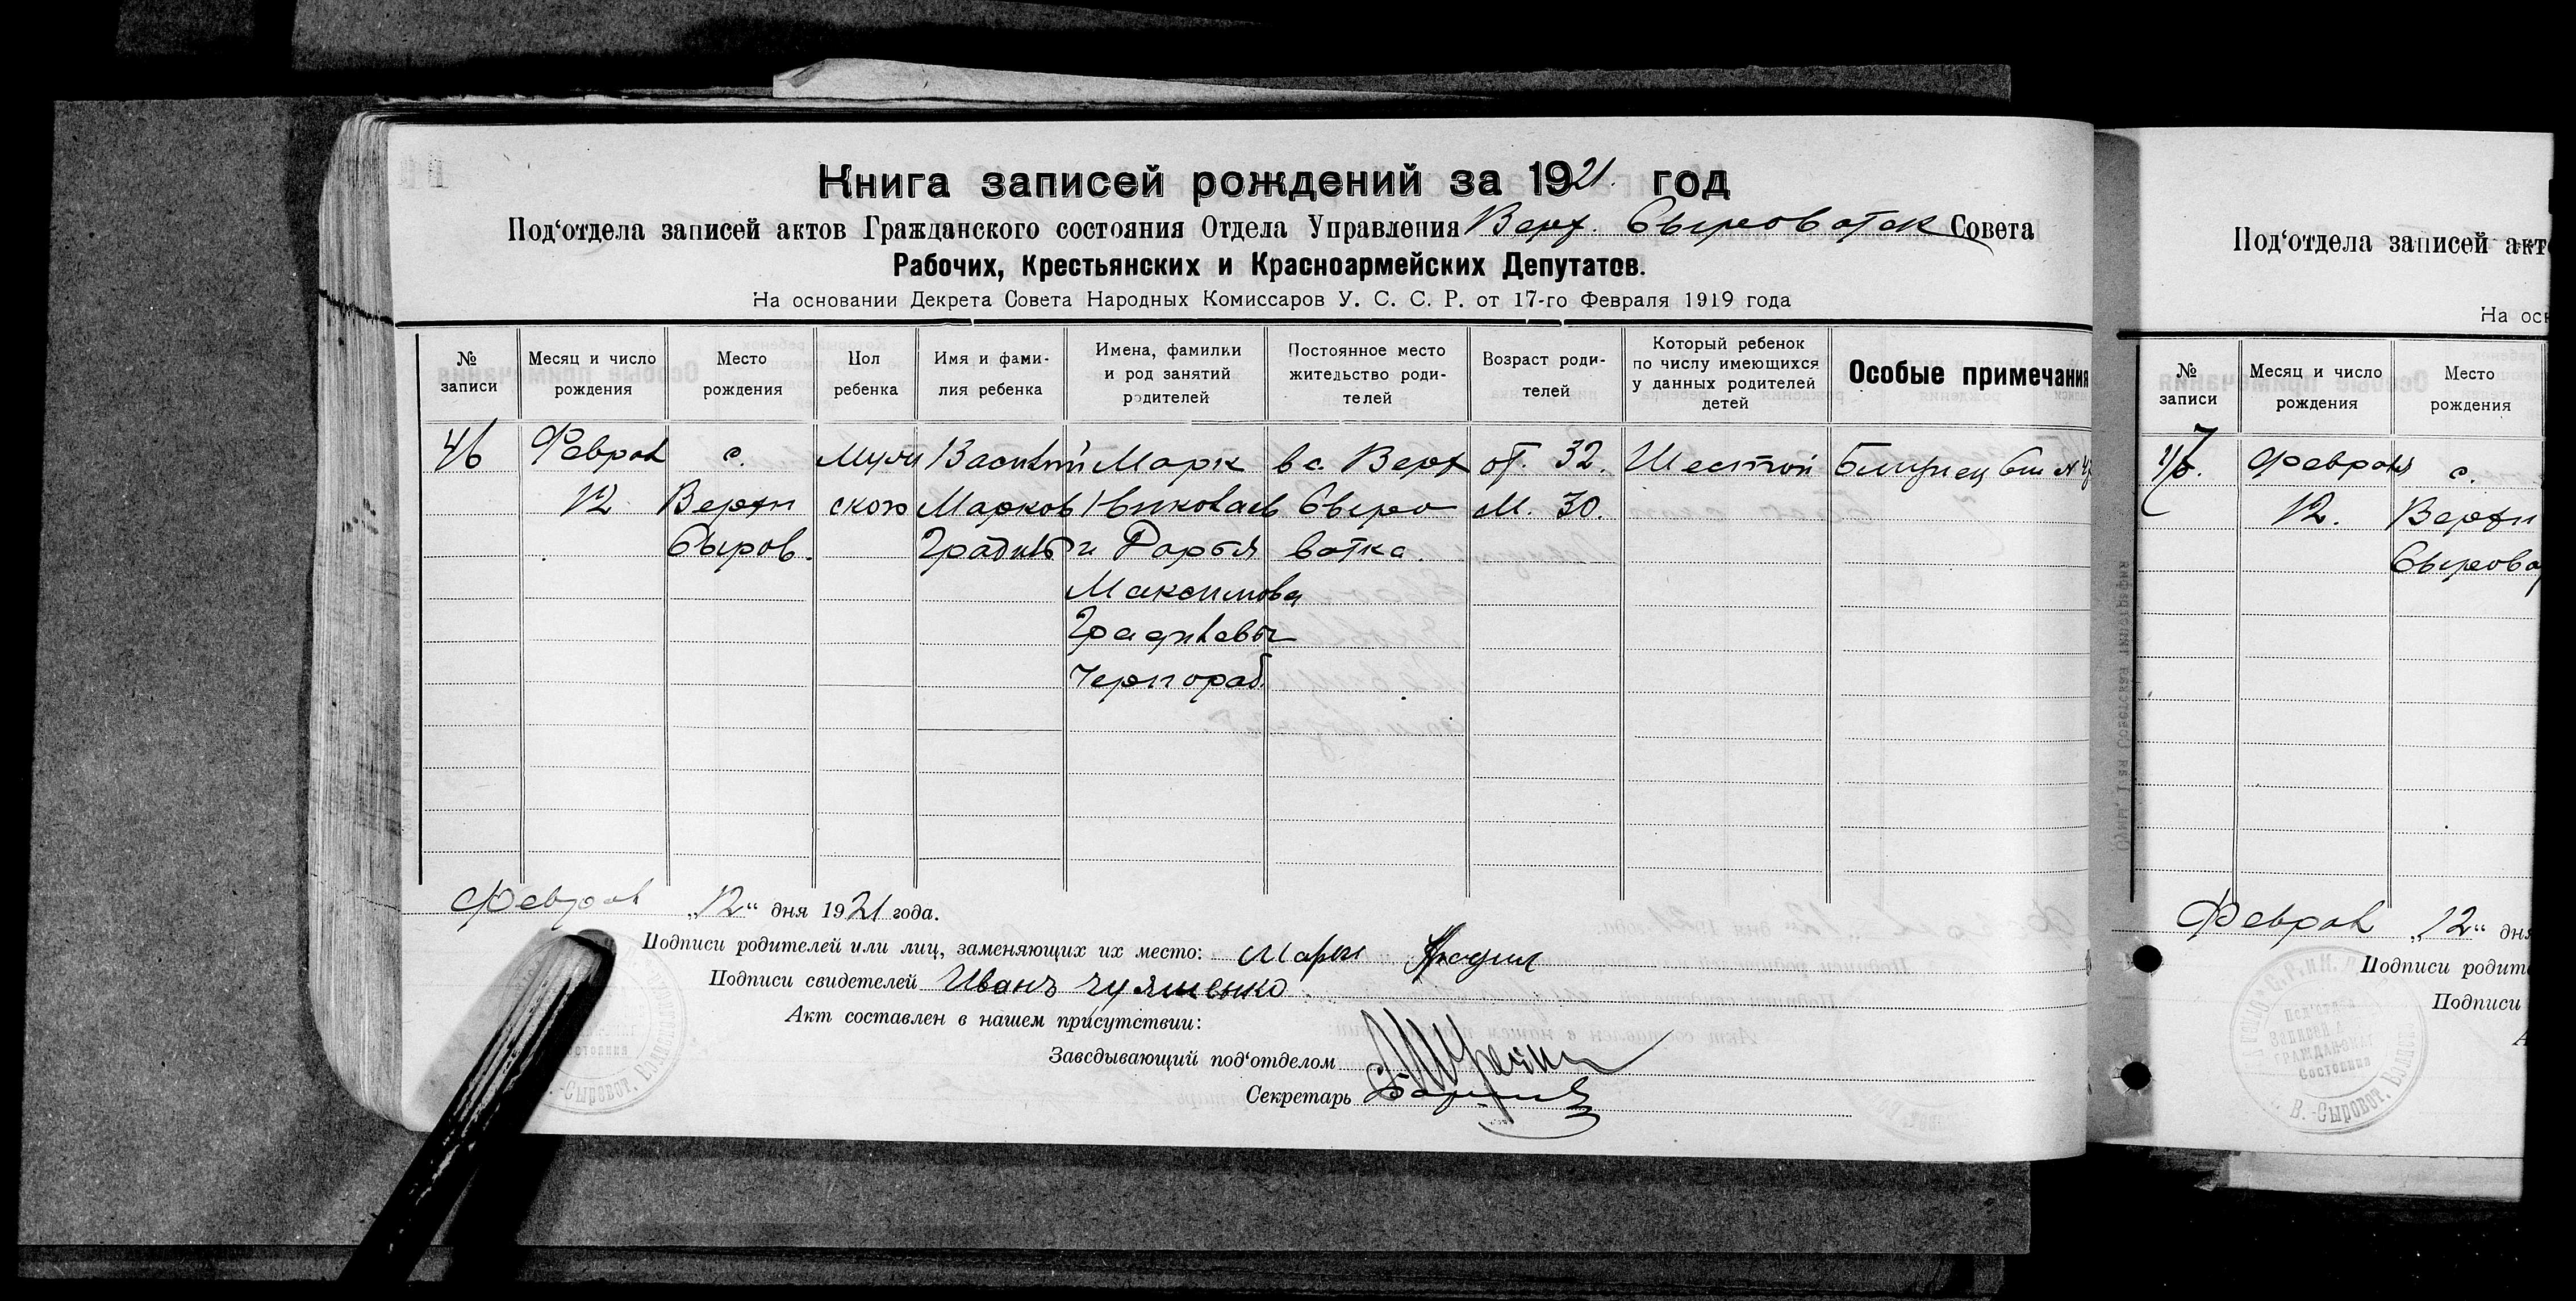 Книга записей рождений за 1921 год
Под‘отдела записей актов Гражданского состояния Отдела Управления Верх. Сыроватск Совета
Рабочих, Крестьянских и Красноармейских Депутатов.
На основании Декрета Совета Народных Комиссаров У. С. С. Р. от 17-го Февраля 1919 года
№ записи
Месяц и число рождения
Место рождения
Пол ребенка
Имя и фами-
лия ребенка
Имена, фамилии
и род занятий
родителей
Постоянное место
жительство роди-
телей
Возраст роди-
телей
Который ребенок
по числу имеющихся
у данных родителей
детей
Особые примечания
46
Феврал
12
с.
Верхн
Сыров.
Мужи
ского
Василий
Марков
Марк
Николаев
и Дарья
Максимова
Чернораб.
в с. Верх
Сыро
ватка
от. 32.
М. 30.
Шестой
Близнец
Феврал „12“ дня 1921 года.
Подписи родителей или лиц, заменяющих их место: Марк
Подписи свидетелей Иванъ
Акт составлен в нашем присутствии:
Заведывающий под‘отделом
Секретарь
Под‘отдела записей акто
На осн
№ записи
Месяц и число рождения
Место рождения
Февраля
12.
с.
Верхн
Сыроват
Феврал „12“ дня
Подписи родите
Подписи
Записей
Гражданског
Состояния
В.-Сыроват.